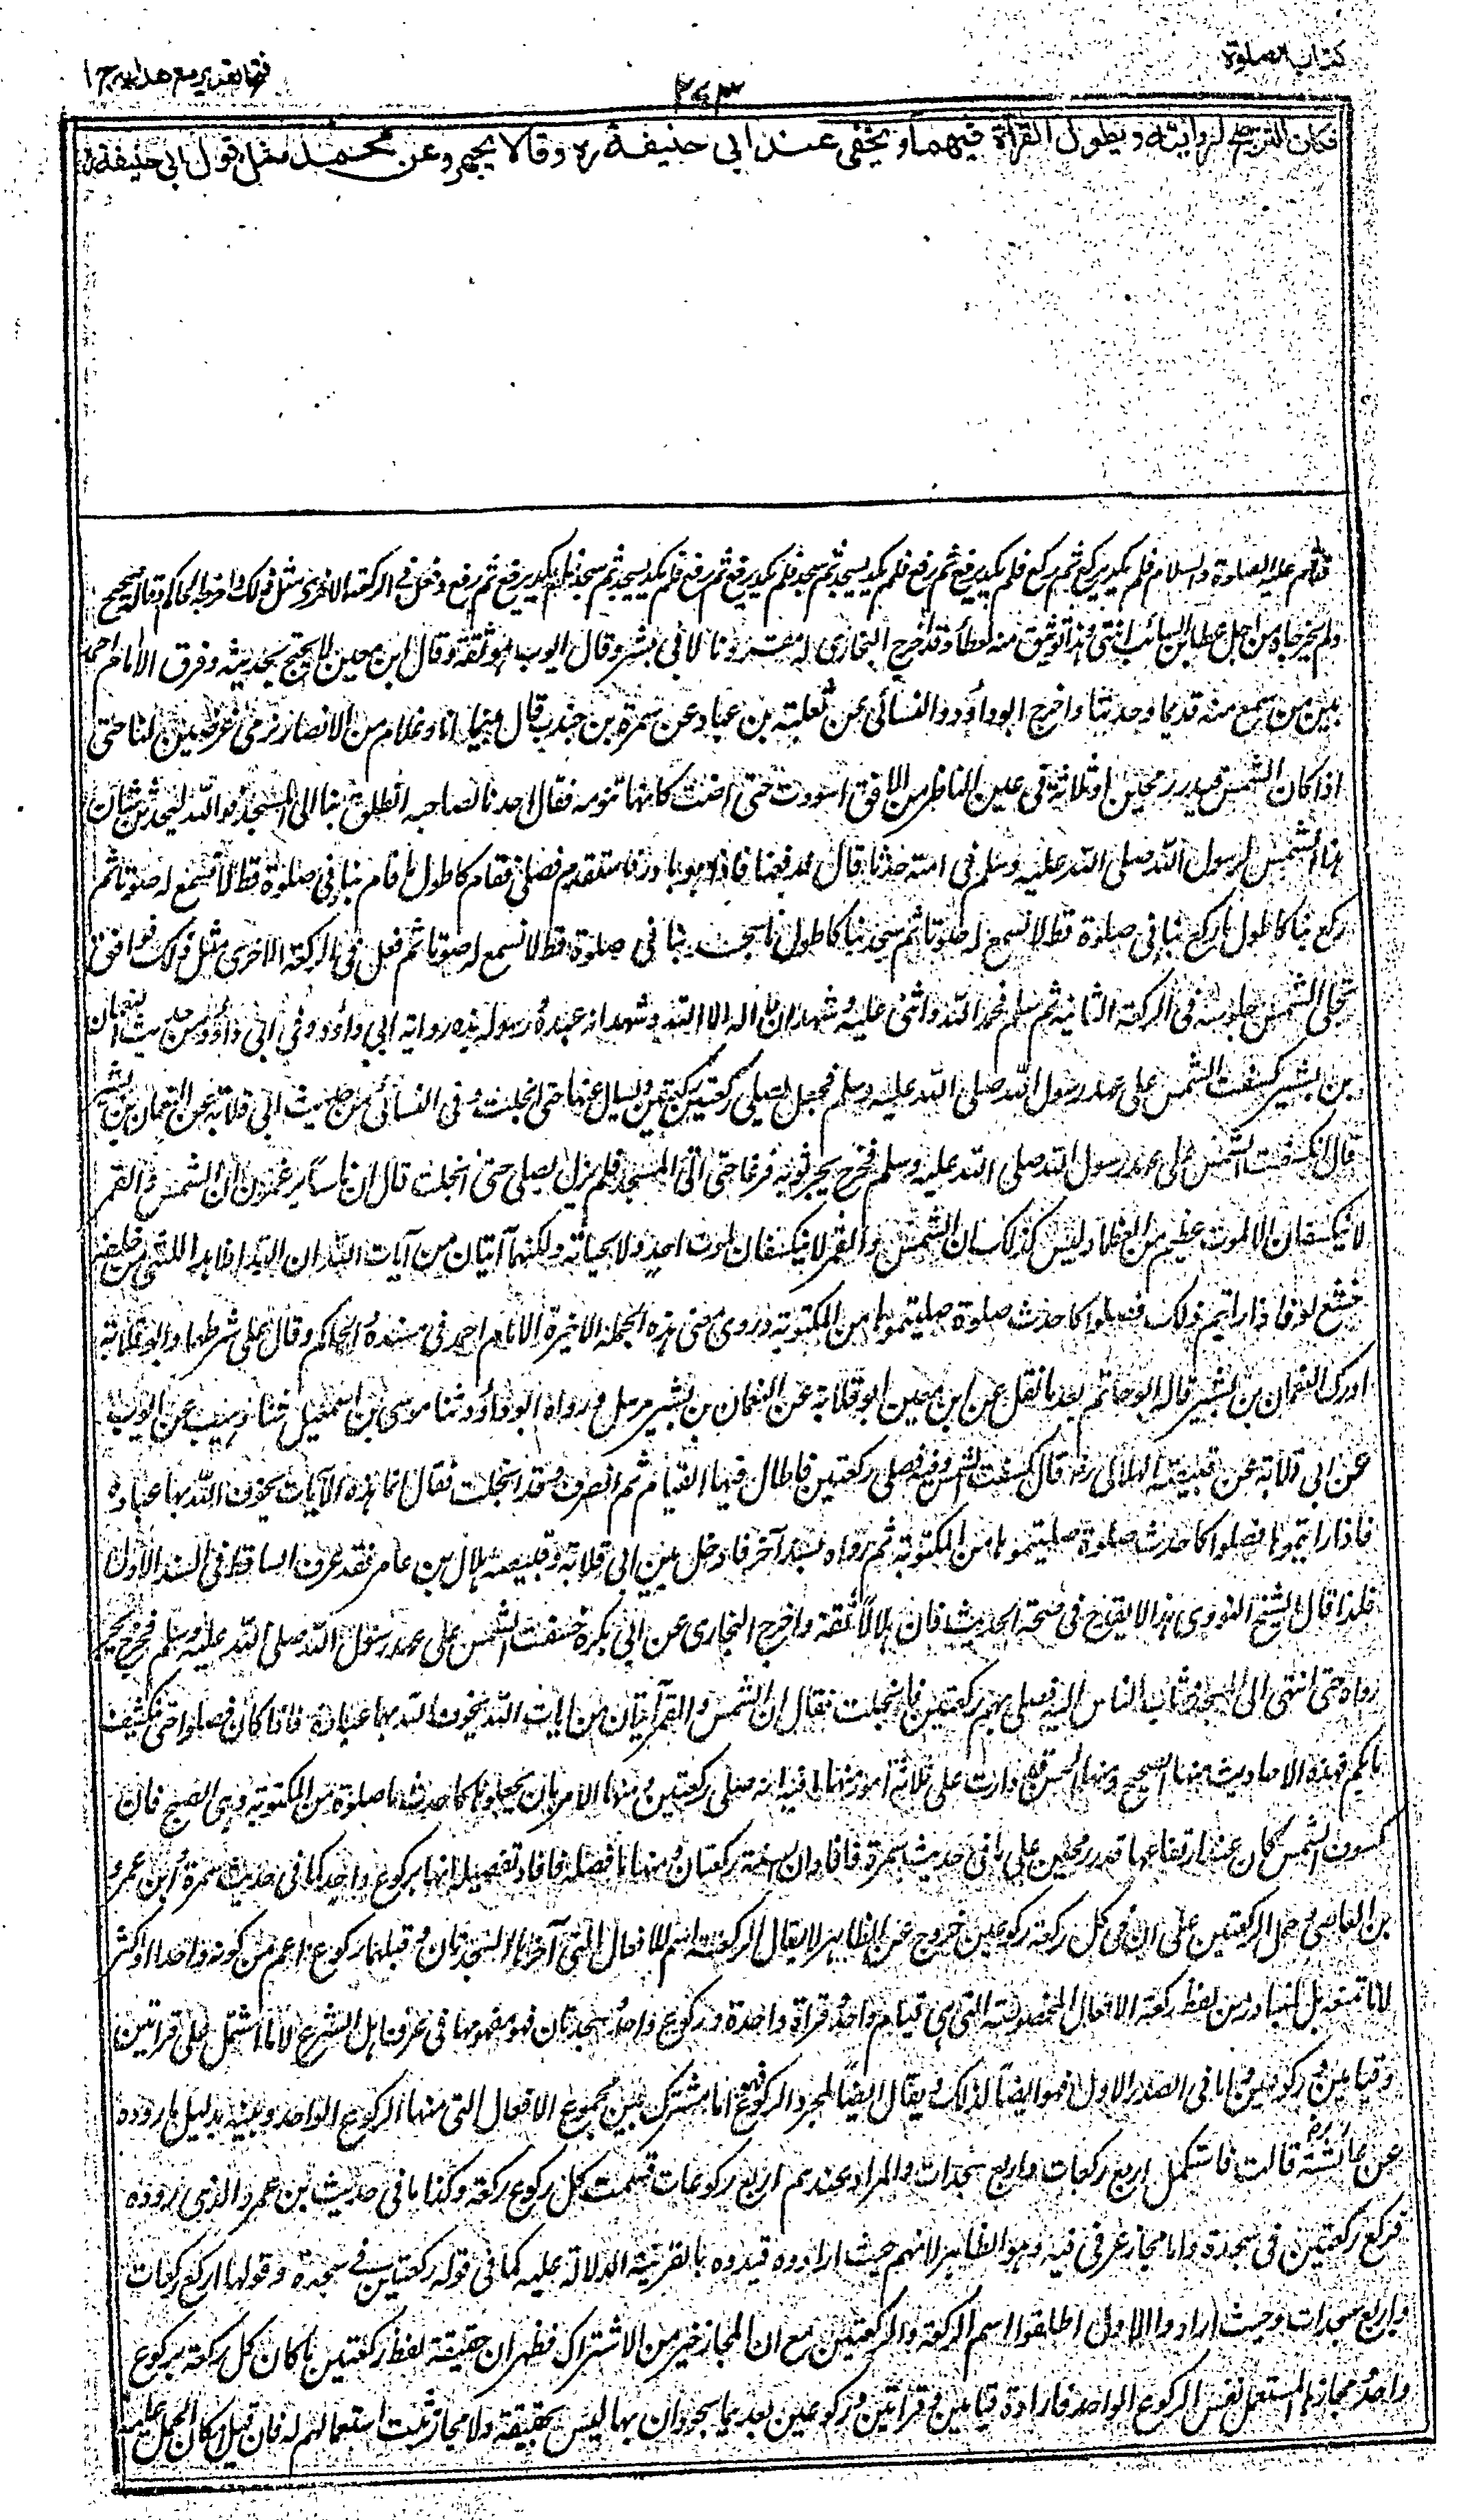 كتاب الصلوة
٢٧٣
فتح القدير مع هدايه ج ١
فكان الترجيح لروايته ويطول القرأة فيهما ويخفى عند ابي حنيفة ره وقالا يجهر وعن محمد مثل قول ابي حنيفة ره
عليه الصلوة والسلام فلم يكد يركع ثم ركع فلم يكد يرفع ثم رفع فلم يكد يسجد ثم سجد فلم يكد يرفع ثم رفع فلم يكد يسجد ثم سجد فلم يكد يرفع ثم رفع وفعل فى الركعة الاخرى مثل ذلك واخرجه الحاكم وقال صحيح
ولم يخرجاه من اجل عطا بن السائب انتهى وهذا توثيق منه لعطأ وقد اخرج البخارى له مقرونا لابى بشر وقال ايوب هو ثقة وقال ابن معين لا يحتج بحديثه وفرق الامام احمد
بين من سمع منه قديما وحديثا واخرج ابو داؤد والنسائى عن ثعلبة بن عباد عن سمرة بن جندب قال بينما انا وغلام من الانصار نرمى غرضين لنا حتى
اذا كان الشمس قيد رمحين او ثلاثة فى عين الناظر من الافق اسودت حتى اضت كانها تنومه فقال احدنا لصاحبه انطلق بنا الى المسجد فوالله ليحدثن شان
هذا الشمس لرسول الله صلى الله عليه وسلم فى امته حدثا قال فدفعنا فاذا هو بارز فاستقدم فصلى فقام كاطول ما قام بنا فى صلوة قط لا نسمع له صوتا ثم
ركع بنا كاطول ما ركع بنا فى صلوة قط لا نسمع له صوتا ثم سجد بنا كاطول ما سجد بنا فى صلوة قط لا نسمع له صوتا ثم فعل فى الركعة الاخرى مثل ذلك فوافق
تجلى الشمس جلوسه فى الركعة الثانية ثم سلم فحمد الله واثنى عليه وشهد ان لا اله الا الله وشهد انه عبده ورسوله هذه رواية ابى داؤد وفى ابى داؤد من حديث النعمان
بن بشير كسفت الشمس على عهد رسول الله صلى الله عليه وسلم فجعل يصلى ركعتين ركعتين ويسال عنها حتى انجلت وفى النسائى من حديث ابى قلابة عن النعمان بن بشير
قال انكسفت الشمس على عهد رسول الله صلى الله عليه وسلم فخرج يجر ثوبه فزعا حتى اتى المسجد فلم يزل يصلى حتى انجلت قال ان ناسا يزعمون ان الشمس والقمر
لا ينكسفان الا لموت عظيم من العظما وليس كذلك ان الشمس والقمر لا ينكسفان لموت احد ولا لحياته ولكنهما آيتان من آيات الله ان الله اذا بدا لشئ من خلقه
خشع له فاذا رايتم ذلك فصلوا كاحدث صلوة صليتموها من المكتوبة وروى معنى هذه الجملة الاخيرة الامام احمد فى مسنده والحاكم وقال على شرطهما وابو قلابة
ادرك النعمان بن بشير قاله ابو حاتم بعد ما نقل عن ابن معين ابو قلابة عن النعمان بن بشير مرسل ورواه ابو داؤد ثنا موسى بن اسمعيل ثنا وهيب عن ايوب
عن ابى قلابة عن قبيصة الهلالى رض قال كسفت الشمس وفيه فصلى ركعتين فاطال فيها القيام ثم انصرف وقد انجلت فقال انما هذه الآيات يخوف الله بها عباده
فاذا رايتموها فصلوا كاحدث صلوة صليتموها من المكتوبة ثم رواه بسند آخر فادخل بين ابى قلابة وقبيصة هلال بن عامر فقد عرف الساقط فى السند الاول
فلذا قال الشيخ النووى هذا لا يقدح فى صحة الحديث فان هلالا ثقة واخرج البخارى عن ابى بكرة خسفت الشمس على عهد رسول الله صلى الله عليه وسلم فخرج يجر
رداه حتى انتهى الى المسجد وثاب الناس اليه فصلى بهم ركعتين فانجلت فقال ان الشمس والقمر آيتان من ايات الله يخوف الله بها عباده فاذا كان فصلوا حتى ينكشف
ما بكم فهذه الاحاديث منها الصحيح ومنها الحسن قد دارت على ثلاثة امور منها ما فيه انه صلى ركعتين ومنها الامر بان يجعلوها كاحدث ما صلوة من المكتوبة وهى الصبح فان
كسوف الشمس كان عند ارتفاعها قدر رمحين على ما فى حديث سمرة فافاد ان السنة ركعتان ومنها ما فصله فافاد تفصيله انها بركوع واحد كما فى حديث سمرة وابن عمرو
بن العاص وحمل الركعتين على ان فى كل ركعة ركوعين خروج عن الظاهر لا يقال الركعة اسم للافعال التى آخرها السجدتان وقبلهما ركوع اعم من كونه واحدا او اكثر
لانا نمنعه بل المتبادر من لفظ ركعة الافعال المخصوصة التى هى قيام واحد وقراة واحدة وركوع واحد وسجدتان فهو مفهومها فى عرف اهل الشرع لا ما اشتمل على قراتين
وقيامين وركوعين واما فى الصدر الاول فهو ايضا لذلك ويقال ايضا لمجرد الركوع فهو اما مشترك بين مجموع الافعال التى منها الركوع الواحد وبينه بدليل ما رووه
عن عائشة رض قالت فاستكمل اربع ركعات واربع سجدات والمراد عندهم اربع ركوعات فسمت كل ركوع ركعة وكذا ما فى حديث بن عمرو الذى رووه
فركع ركعتين فى سجدة واما مجاز عرفى فيه وهو الظاهر لانهم حيث ارادوه قيدوه بالقرينة الدلالة عليه كما فى قوله ركعتين فى سجدة وقولها اربع ركعات
واربع سجدات وحيث ارادوا الاول اطلقوا اسم الركعة والركعتين مع ان المجاز خير من الاشتراك فظهر ان حقيقة لفظ ركعتين ما كان كل ركعة بركوع
واحد ومجازها المستعمل نفس الركوع الواحد فارادة قيامين وقراتين وركوعين بعدهما سجودان بها ليس بحقيقة ولا مجاز ثبت استعمالهم له فان قيل امكان الحمل عليه